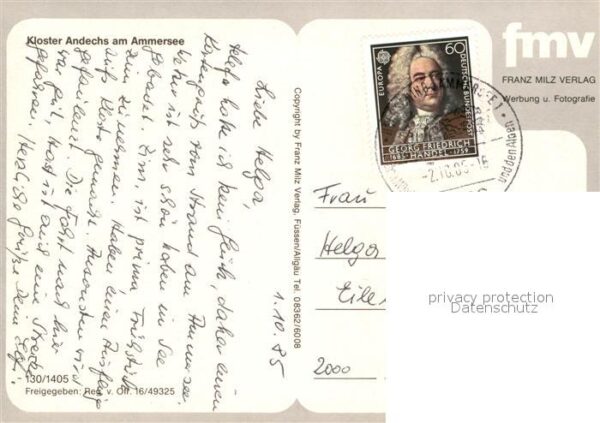 Kloster Andechs am Ammersee
1.10.85
Liebe Helga,
Helga hatte ich kein Glück, daher einen
Kartengruß vom Strand am Ammersee.
Wetter ist sehr schön haben im See
gebadet. Zim. ist prima, Frühstück
zum
Kloster gemacht. Ansonsten wird
gefaulenzt. Die Fahrt nach hier
war gut,
gefahren. Herzliche Grüße Deine
130/1405
Freigegeben: Reg. v. Ofr. 16/49325
Copyright by Franz Milz Verlag, Füssen/Allgäu Tel. 08362/6008
EUROPA
60
DEUTSCHE BUNDESPOST
GEORG FRIEDRICH
1685 HÄNDEL 1759
-2.10.85-16
und den Alpen
fmv
FRANZ MILZ VERLAG
Werbung u. Fotografie
Frau
Helga
Eile
2000
privacy protection
Datenschutz